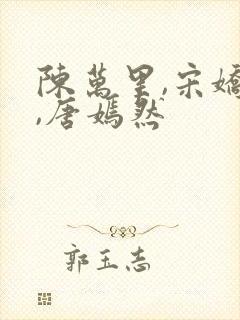 陳萬里,宋嬌
,唐嫣然
郭玉志